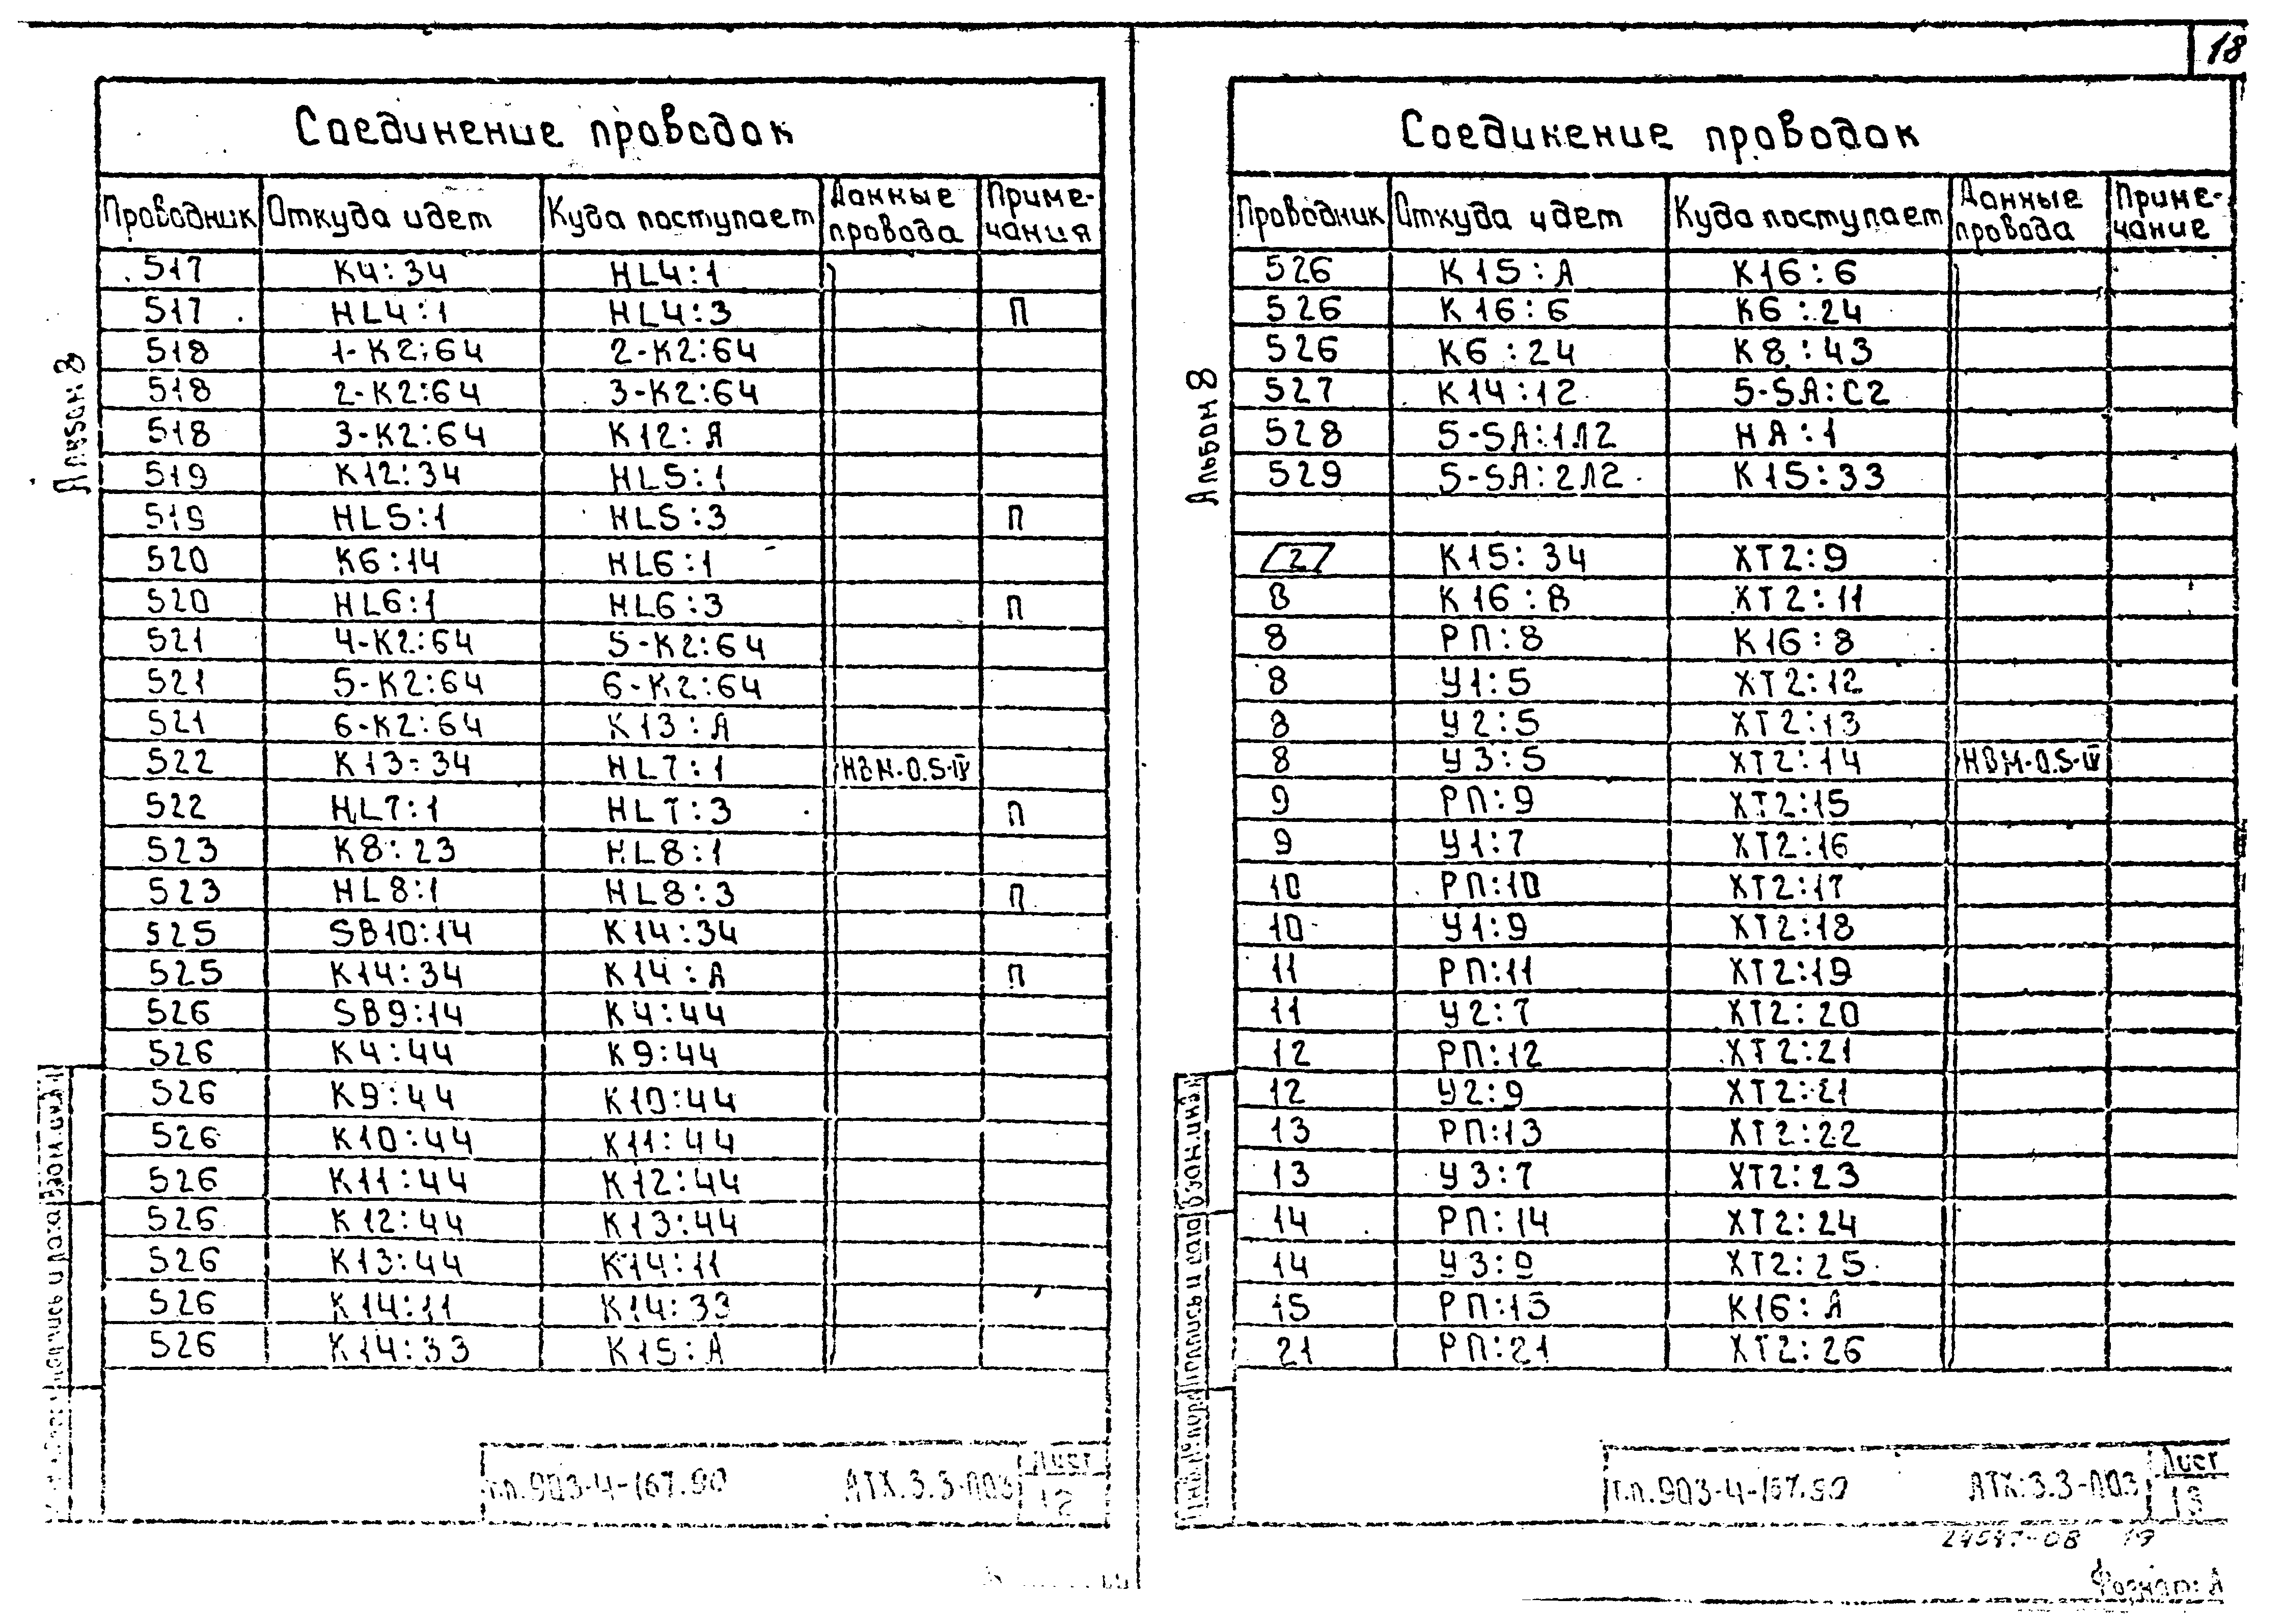 18
Соединение проводок
Проводник Откуда идет Куда поступает Данные провода Приме-чания
517 К4:34 HL4:1
517 HL4:1 HL4:3 П
518 1-К2:64 2-К2:64
518 2-К2:64 3-К2:64
518 3-К2:64 К12:А
519 К12:34 HL5:1
519 HL5:1 HL5:3 П
520 К6:14 HL6:1
520 HL6:1 HL6:3 П
521 4-К2:64 5-К2:64
521 5-К2:64 6-К2:64
521 6-К2:64 К13:А
522 К13:34 HL7:1 НВМ-0.5-IV
522 HL7:1 HL7:3 П
523 К8:23 HL8:1
523 HL8:1 HL8:3 П
525 SB10:14 К14:34
525 К14:34 К14:А П
526 SB9:14 К4:44
526 К4:44 К9:44
526 К9:44 К10:44
526 К10:44 К11:44
526 К11:44 К12:44
526 К12:44 К13:44
526 К13:44 К14:11
526 К14:11 К14:33
526 К14:33 К15:А
Альбом 8
т.п.903-4-167.90 АТХ.3.3-П03 Лист
12
Соединение проводок
Проводник Откуда идет Куда поступает Данные провода Приме-чание
526 К15:А К16:6
526 К16:6 К6:24
526 К6:24 К8:43
527 К14:12 5-SA:С2
528 5-SA:1Л2 НА:1
529 5-SA:2Л2 К15:33
2 К15:34 ХТ2:9
8 К16:В ХТ2:11
8 РП:8 К16:8
8 У1:5 ХТ2:12
8 У2:5 ХТ2:13
8 У3:5 ХТ2:14 НВМ-0.5-IV
9 РП:9 ХТ2:15
9 У1:7 ХТ2:16
10 РП:10 ХТ2:17
10 У1:9 ХТ2:18
11 РП:11 ХТ2:19
11 У2:7 ХТ2:20
12 РП:12 ХТ2:21
12 У2:9 ХТ2:21
13 РП:13 ХТ2:22
13 У3:7 ХТ2:23
14 РП:14 ХТ2:24
14 У3:9 ХТ2:25
15 РП:15 К16:А
21 РП:21 ХТ2:26
Альбом 8
Инв.№ подл. Подпись и дата Взам.инв.№
т.п.903-4-167.90 АТХ.3.3-П03 Лист
13
24547-08 19
Формат А